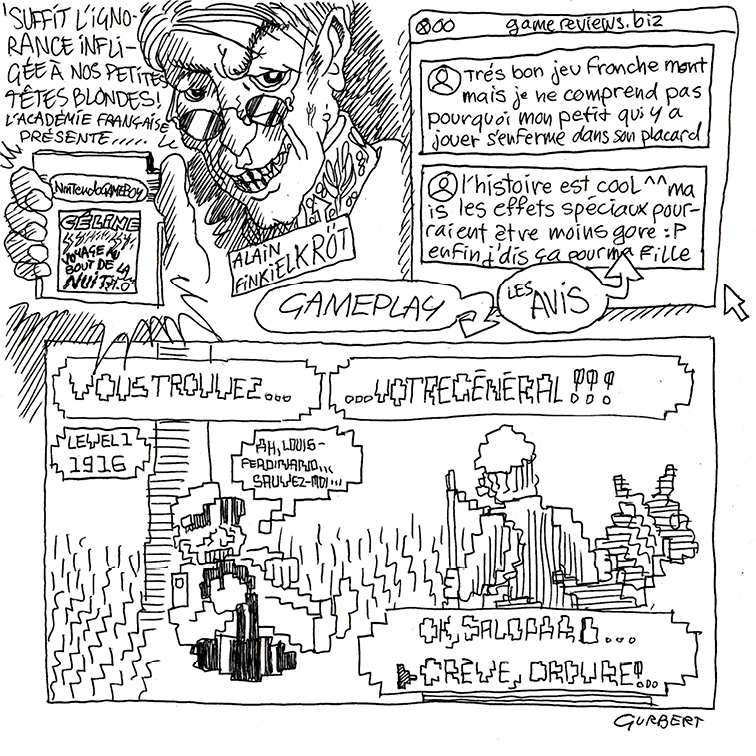 "SUFFIT L'IGNO-
RANCE INFLI-
GÉE À NOS PETITES
TÊTES BLONDES!
L'ACADÉMIE FRANÇAISE
PRÉSENTE.....
NintendoGAMEBOY
CÉLINE
VOYAGE AU
BOUT DE LA
NUIT
ALAIN
FINKIELKRÖT
gamereviews.biz
Trés bon jeu franchemont
mais je ne comprend pas
pourquoi mon petit qui y a
jouer s'enferme dans son placard
l'histoire est cool ^^ ma
is les effets spéciaux pour-
raient être moins gore :P
enfin j'dis ça pour ma fille
GAMEPLAY
LES AVIS
VOUS TROUVEZ...
...VOTRE GÉNÉRAL !!!
LEVEL 1
1916
AH, LOUIS-
FERDINAND...
SAUVEZ-MOI...
OK, SALOPARD...
CRÈVE, ORDURE!...
GURBERT